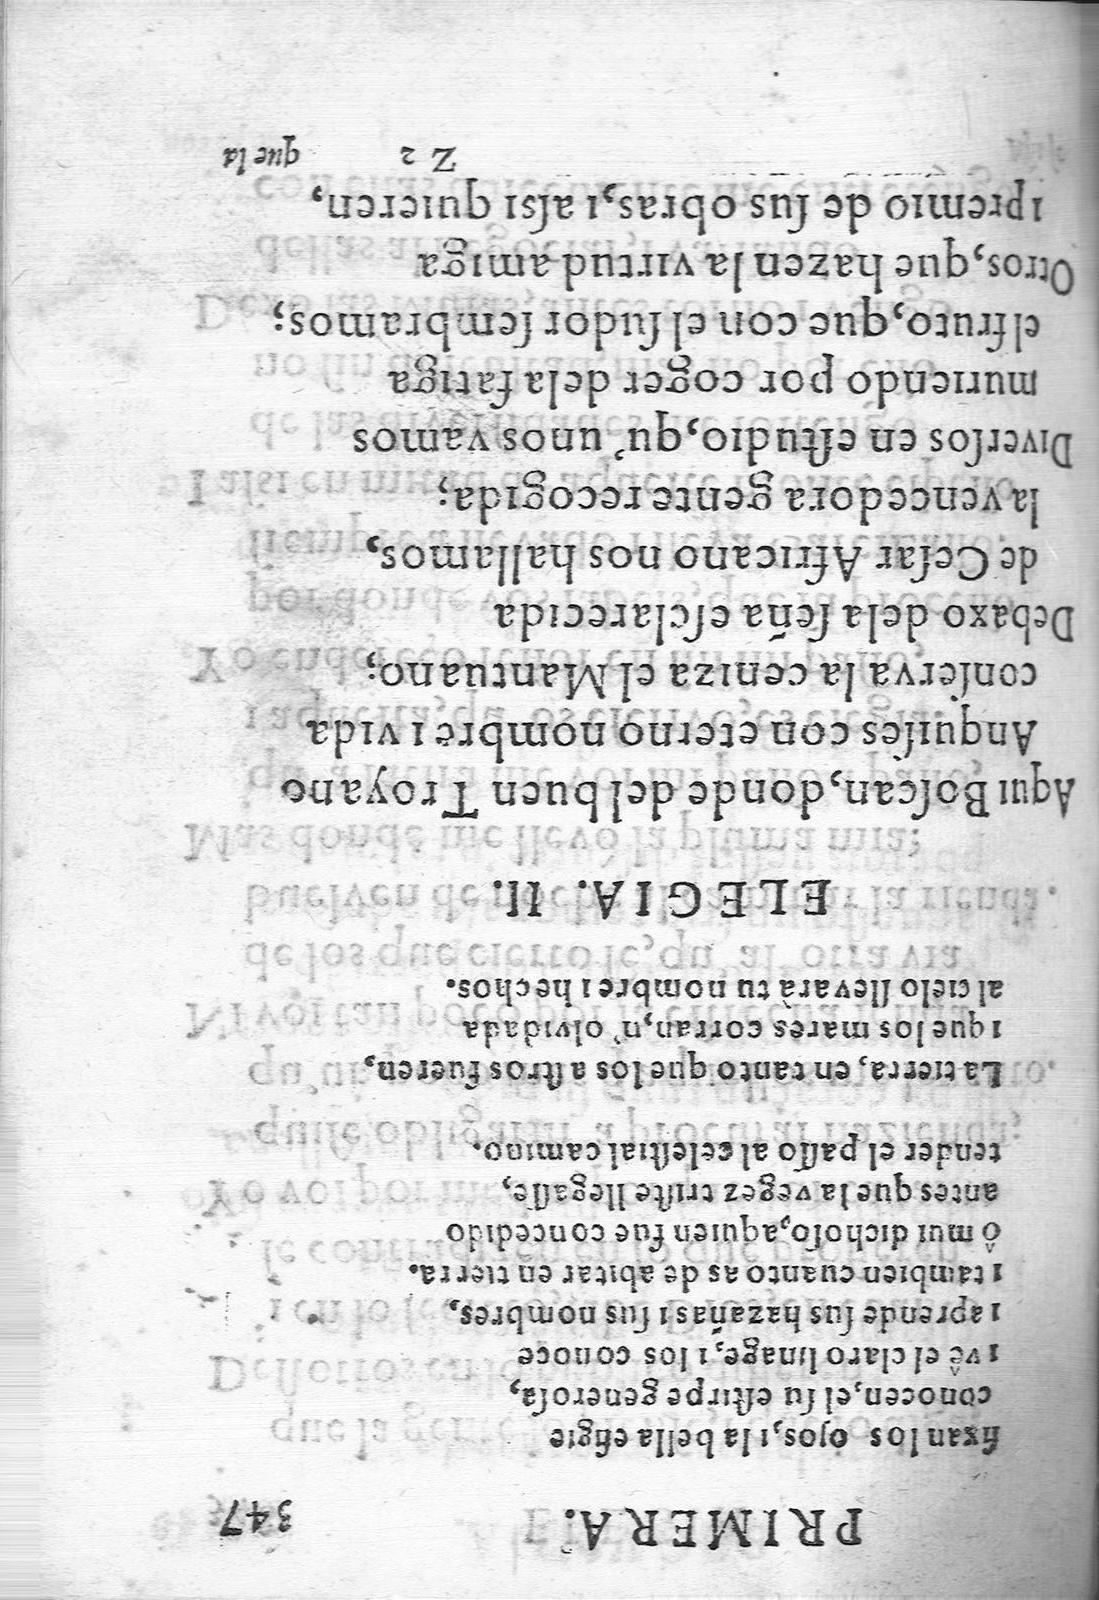 PRIMERA. 347
fixan los ojos, i la bella efigie
conocen, el ſu eſtirpe generoſa,
i vê el claro linage, i los conoce
i aprende ſus hazañas i ſus nombres,
i tambien cuanto as de abitar en tierra.
ô mui dichoſo, aquien fue concedido
antes que la vegez triſte llegaſſe,
tender el paſſo al celeſtial camino.
La tierra, en tanto que los aſtros fueren,
i que los mares corran, n' olvidada
al cielo llevarà tu nombre i hechos.
ELEGIA. II.
Aqui Boſcan, donde del buen Troyano
Anquiſes con eterno nombre i vida
conſerva la ceniza el Mantuano;
Debaxo dela ſeña eſclarecida
de Ceſar Africano nos hallamos,
la vencedora gente recogida;
Diverſos en eſtudio, qu' unos vamos
muriendo por coger dela fatiga
el fruto, que con el ſudor ſembramos;
Otros, que hazen la virtud amiga
i premio de ſus obras, i aſsi quieren,
Z 2 que la